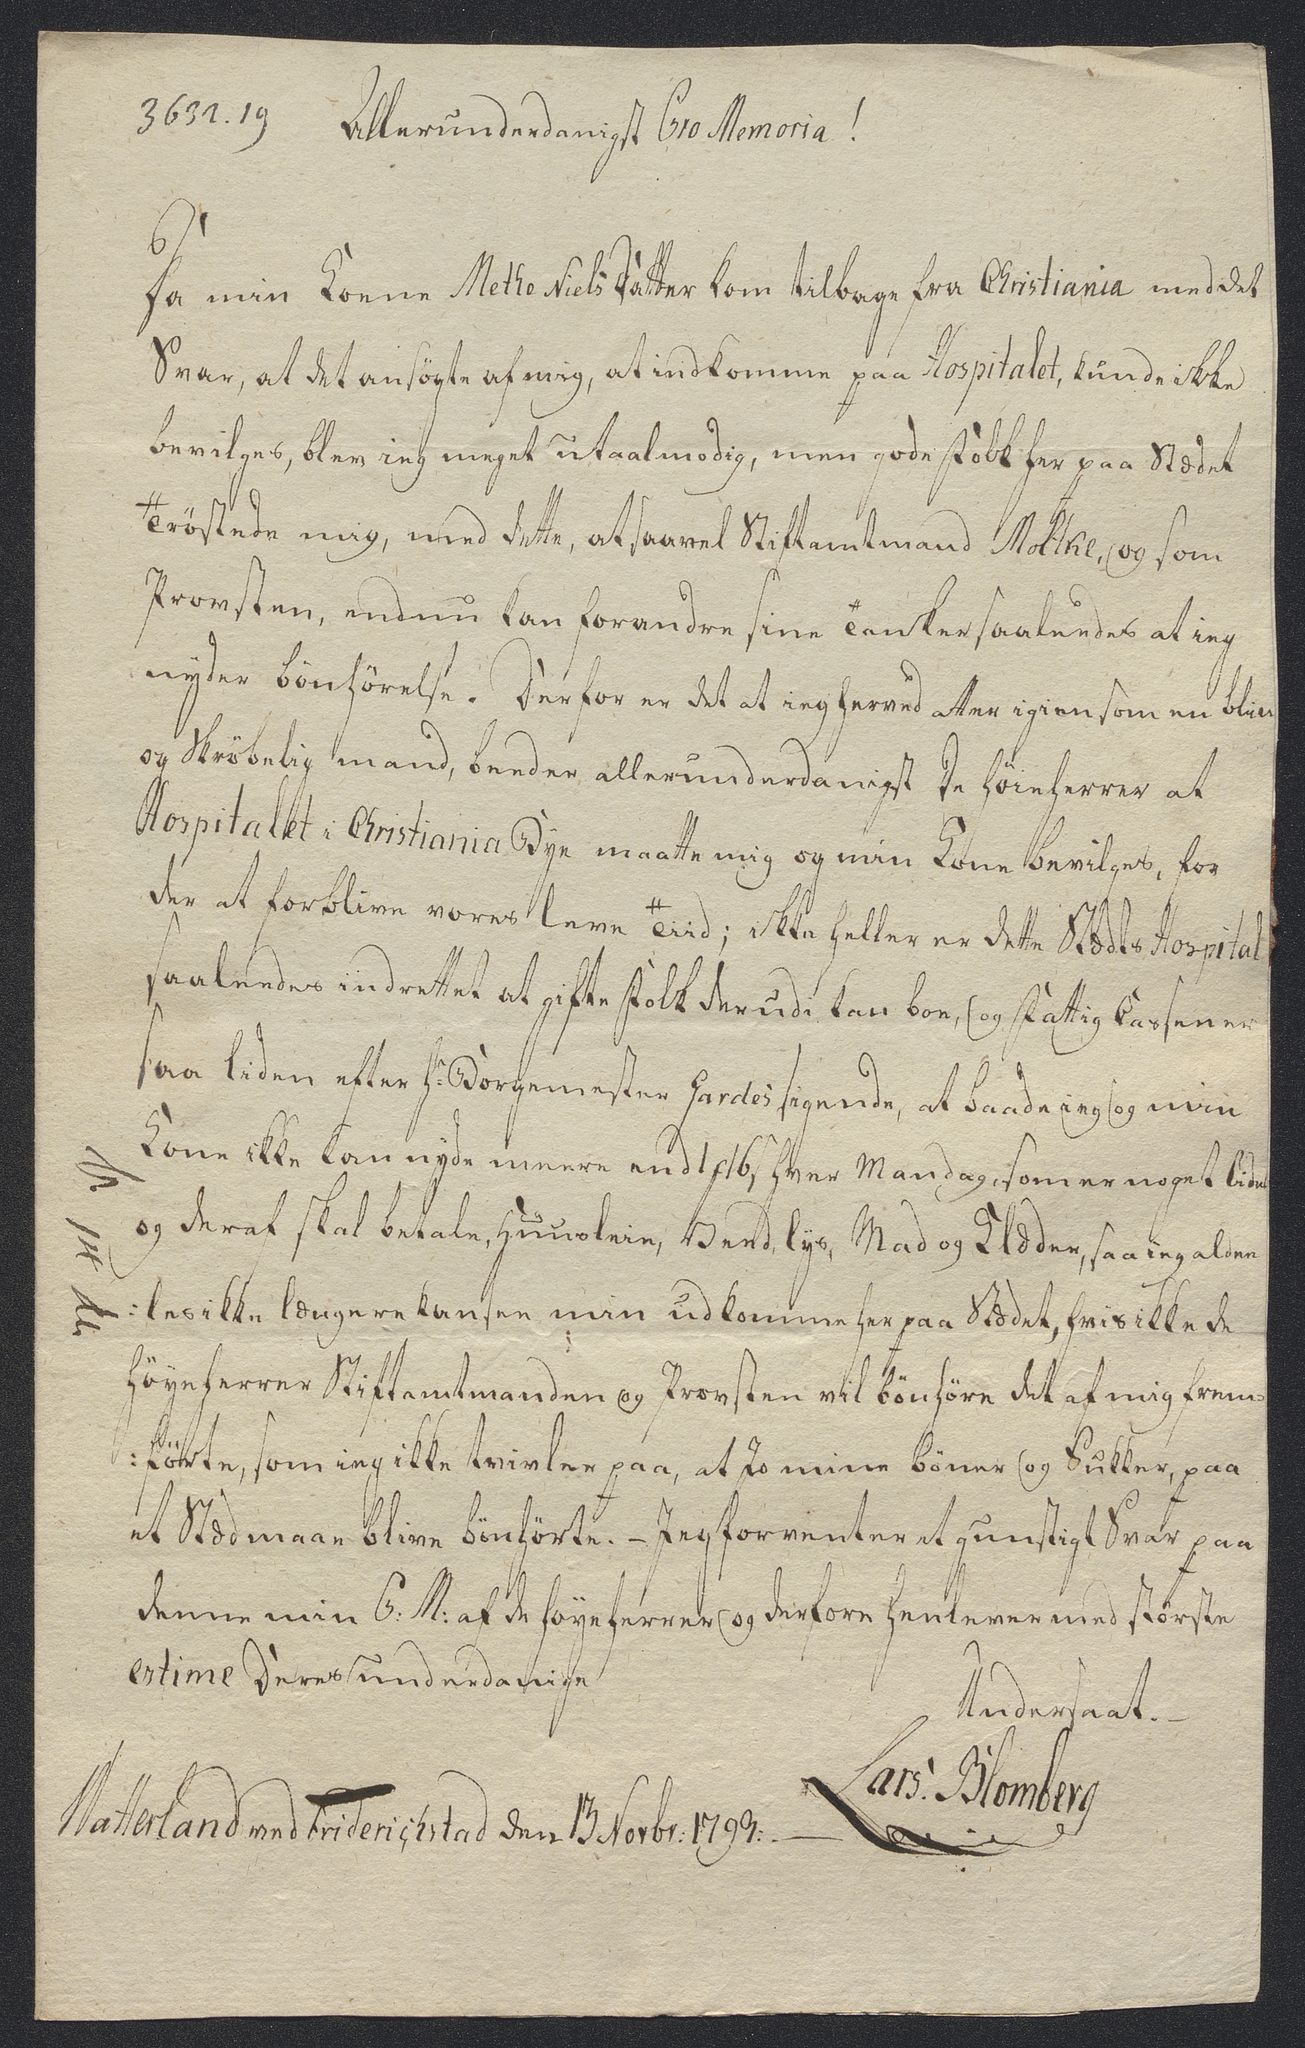 3632.19 Allerunderdanigst Pro Memoria!
Da min Kone Methe Niels Datter kom tilbage fra Christiania med det
Svar, at det ansögte af mig, at indkomme paa Hospitalet, kunde ikke
bevilges, blev ieg meget utaalmodig, men gode Folk her paa Stædet
Tröstede mig, med dette, at saavel Stiftamtmand Moltke, og som
Provsten, endnu kan forandre sine Tanker saaleedes at ieg
nyder bönhörelse. Derfor er det at ieg herved atter igien som en blin
og Skröbelig mand, beeder allerunderdanigst De höie herrer at
Hospitalet i Christiania Bye maatte mig og min Kone bevilges, for
der at forblive vores leve Tiid; ikke heller er dette Stæds Hospital
saaleedes indrettet at gifte Folk derudi kan boe, og Fattig Kassen er
saa liden efter Hr: Borgemester Gardes sigende, at baade ieg og min
Kone ikke kan nyde meere end 1 f 16 s hver Mandag, som er noget lidet
og deraf skal betale, Huusleie, Veed, lys, Mad og Klæder, saa ieg alde
:les ikke længere kan see min udkomme her paa Stædet, hvis ikke de
Höye herrer Stiftamtmanden og Provsten vil bönhöre det af mig frem=
:förte, som ieg ikke tvivler paa, at jo mine böner og Sukker, paa
et Stæd maae blive bönhörte. – Jeg forventer et gunstigt Svar paa
denne min P: M: af de höye herrer og derfore henlever med störste
estime Deres underdanige
Undersaat. –
Lars. Blomberg
Vatterland ved Friderichstad den 13 Novbr: 1793. –